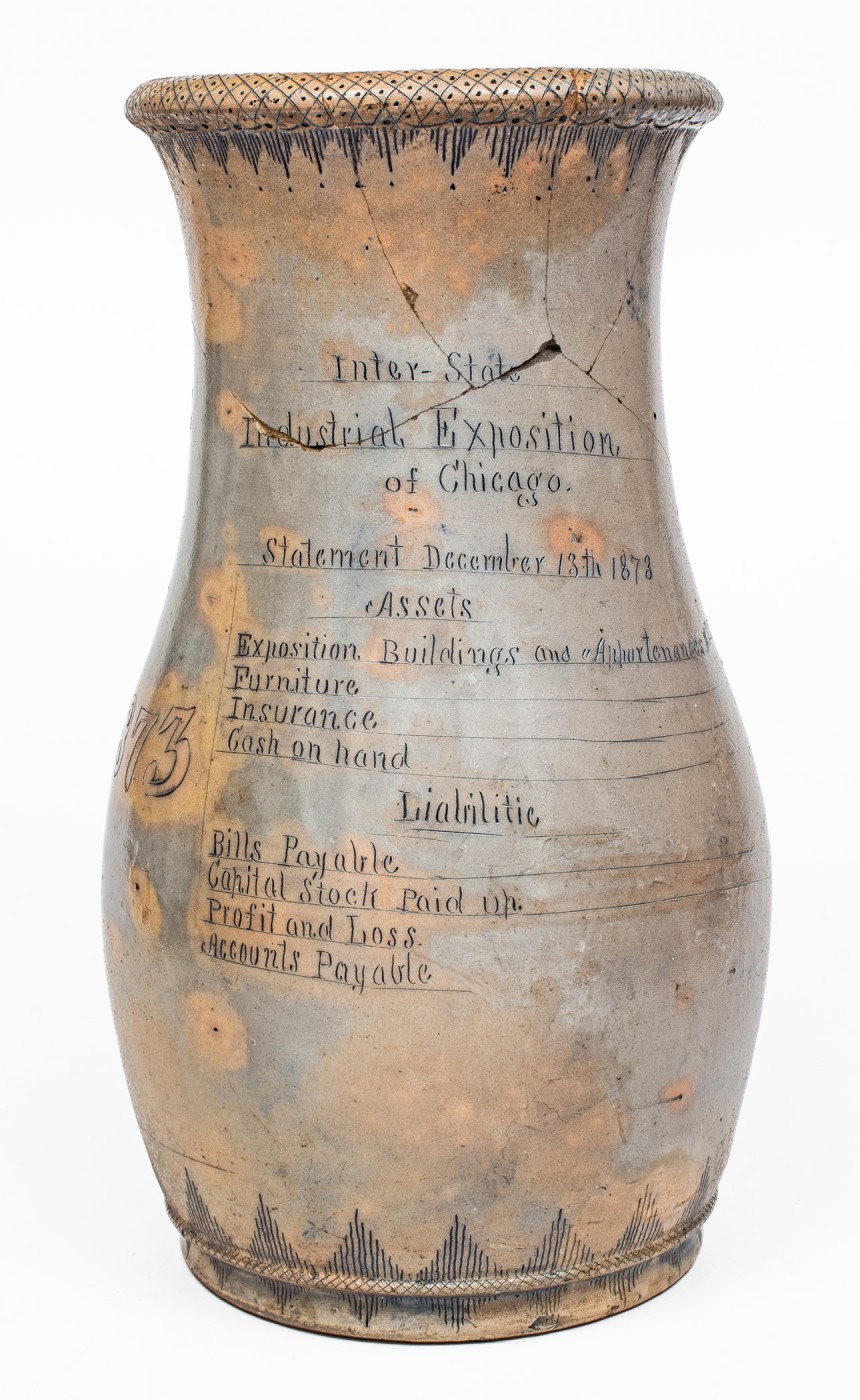 Inter-State
Industrial Exposition
of Chicago.
Statement December 13th 1873
Assets
Exposition Buildings and Appurtenances
Furniture
Insurance
Cash on hand
873
Liabilitie
Bills Payable
Capital Stock Paid up.
Profit and Loss.
Accounts Payable